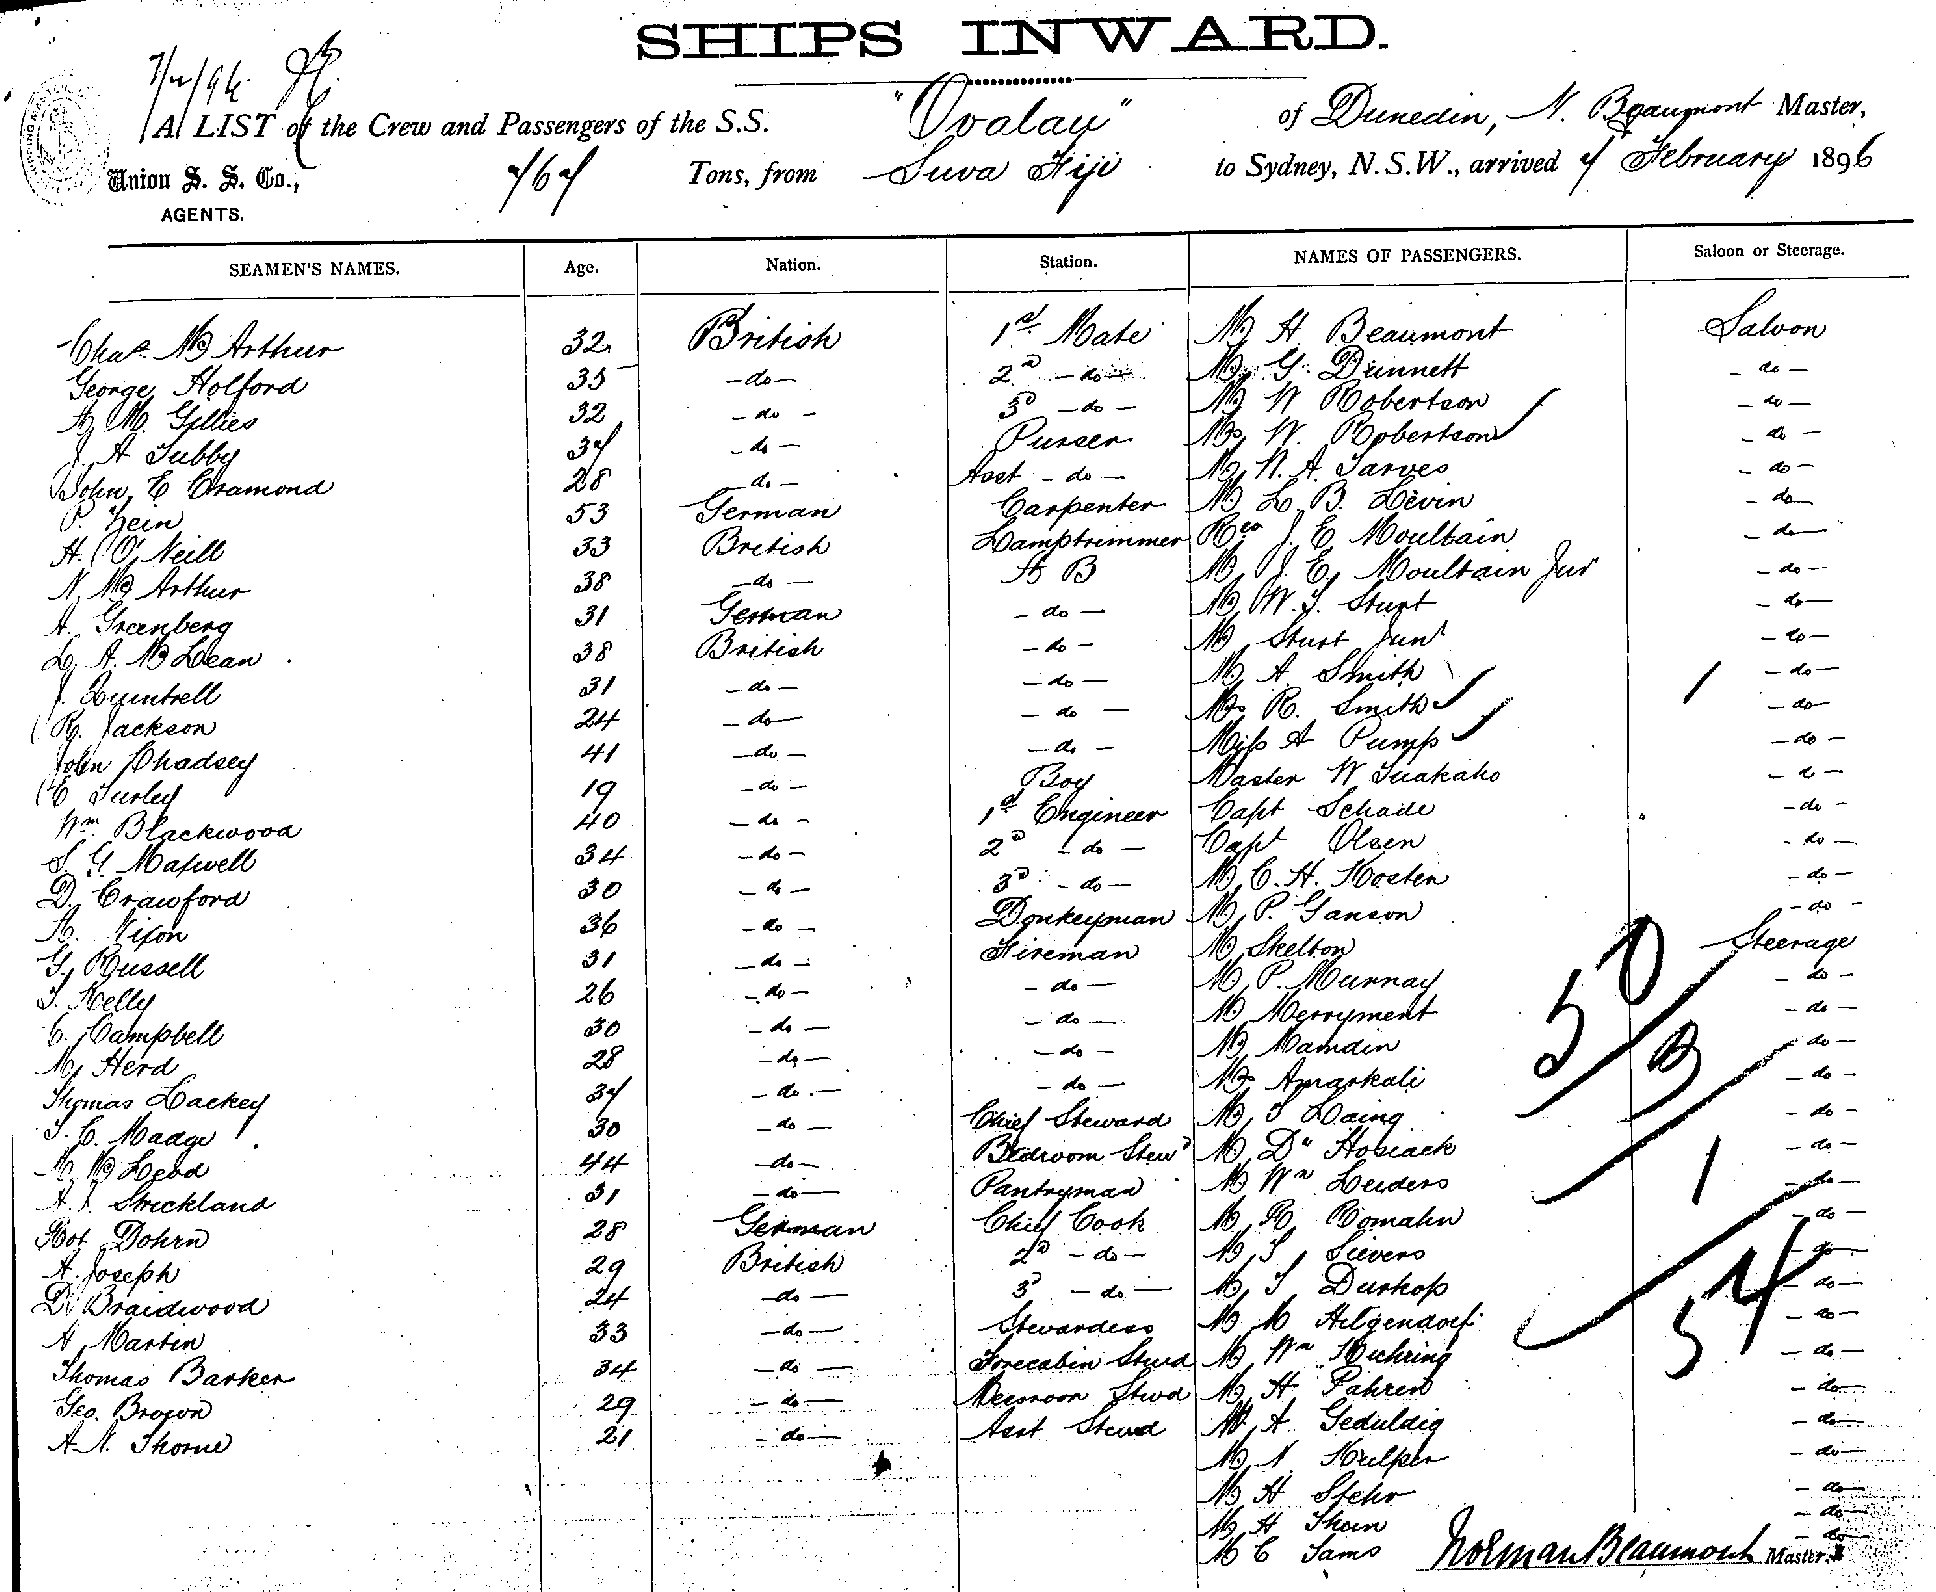 SHIPS INWARD.
7/2/96
A LIST of the Crew and Passengers of the S.S. "Ovalau" of Dunedin, N. Beaumont Master,
Union S. S. Co., 767 Tons, from Suva Fiji to Sydney, N.S.W., arrived 7 February 1896
AGENTS.
SEAMEN'S NAMES. Age. Nation. Station. NAMES OF PASSENGERS. Saloon or Steerage.
Chas. Mc Arthur 32 British 1st Mate Mr H Beaumont Saloon
George Holford 35 -do- 2d -do- Mr G. Dinnett -do-
A. M. Gillies 32 -do- 3d -do- Mr W Robertson -do-
J. A Tubby 37 -do- Purser Mrs W. Robertson -do-
John E Cramond 28 -do- Asst -do- Mr N. A. Tarves -do-
P. Hein 53 German Carpenter Mr L. B. Levin -do-
H. O'Neill 33 British Lamptrimmer Rev J. E Moultain -do-
N. Mc Arthur 38 -do- A B Mr J. E. Moultain Jur -do-
A. Greenberg 31 German -do- Mr W. S. Sturt -do-
L. A. Mc Lean 38 British -do- Mr Sturt Junr -do-
J. Quintrell 31 -do- -do- Mr A Smith -do-
R. Jackson 24 -do- -do- Mrs R. Smith -do-
John Chadsey 41 -do- -do- Miss A Pump -do-
E Turley 19 -do- Boy Master W Tuakaho -do-
Wm. Blackwood 40 -do- 1st Engineer Capt Schade -do-
S. G. Maxwell 34 -do- 2d -do- Capt Olsen -do-
D. Crawford 30 -do- 3d -do- Mr C. H. Hosten -do-
A. Nixon 36 -do- Donkeyman Mr P. Ganson -do-
G. Russell 31 -do- Fireman Mr Skelton Steerage
T. Kelly 26 -do- -do- Mr P. Murray -do-
C. Campbell 30 -do- -do- Mr Merryment -do-
M. Herd 28 -do- -do- Mr Mamdin -do-
Thomas Lackey 37 -do- -do- Mrs Amarkali -do-
T. C. Madge 30 -do- Chief Steward Mr T Laing -do-
Mc Leod 44 -do- Bedroom Stewd Mr Dr Hosiack -do-
A. J. Strickland 31 -do- Pantryman Mr Wm Leiders -do-
Rot Dohrn 28 German Chief Cook Mr R. Comahn -do-
A. Joseph 29 British 2d -do- Mr T. Sievers -do-
D. Braidwood 24 -do- 3d -do- Mr T. Durkop -do-
A. Martin 33 -do- Stewardess Mr M Hilgendorf -do-
Thomas Barker 34 -do- Forecabin Stwd Mr Wm Muhring -do-
Geo. Brown 29 -do- Messroom Stwd Mr H Fahren -do-
A. N. Thorne 21 -do- Asst Stewd Mr A Geduldig -do-
Mr N. Kulper -do-
Mr H Stehr -do-
Mr H Thein -do-
Mr C Sams -do-
50
B
1
54
Norman Beaumont Master.